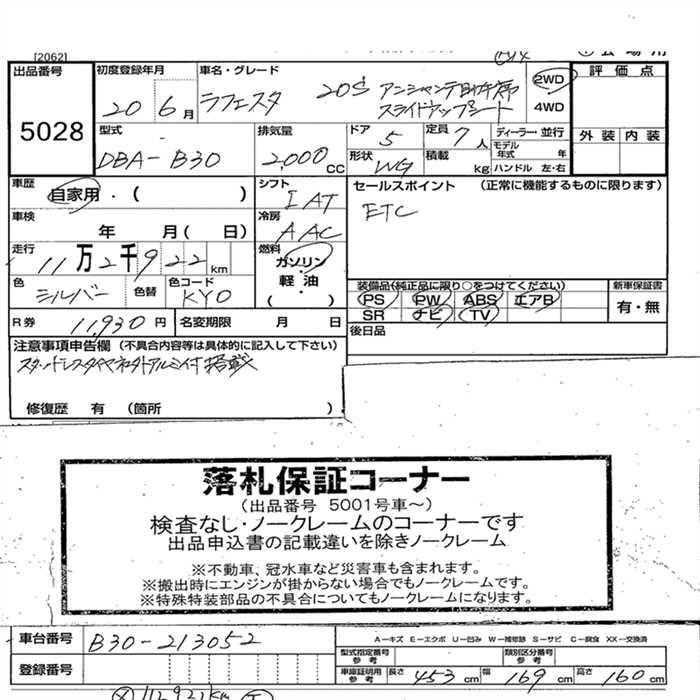 [2062]
出品番号
5028
初度登録年月
20 6 月
車名・グレード
ラフェスタ 20S アンシャンテ助手席
スライドアップシート
2WD
4WD
評価点
外装 内装
型式
DBA-B30
排気量
2,000 cc
ドア
5
定員
7 人
形状
WG
積載
kg
ディーラー・並行
モデル年式 年
ハンドル 左・右
車歴
自家用・( )
シフト
IAT
セールスポイント (正常に機能するものに限ります)
ETC
車検
年 月( 日)
冷房
AAC
走行
11万2千922km
燃料
ガソリン・
軽油
( )
色
シルバー
色替
色コード
KY0
装備品(純正品に限り○をつけてください)
PS PW ABS エアB
SR ナビ TV
新車保証書
有・無
R券 11,930 円
名変期限 月 日
後日品
注意事項申告欄 (不具合内容等は具体的に記入して下さい)
スタッドレスタイヤ アルミ付 搭載
修復歴 有 (箇所 )
落札保証コーナー
(出品番号 5001号車~)
検査なし・ノークレームのコーナーです
出品申込書の記載違いを除きノークレーム
※不動車、冠水車など災害車も含まれます。
※搬出時にエンジンが掛からない場合でもノークレームです。
※特殊特装部品の不具合についてもノークレームになります。
車台番号
B30-213052
登録番号
A-キズ E-エクボ U-凹み W-補修跡 S-サビ C-腐食 XX-交換済
型式指定番号
参考
類別区分番号
参考
車庫証明用
参考
長さ 453 cm 幅 169 cm 高さ 160 cm